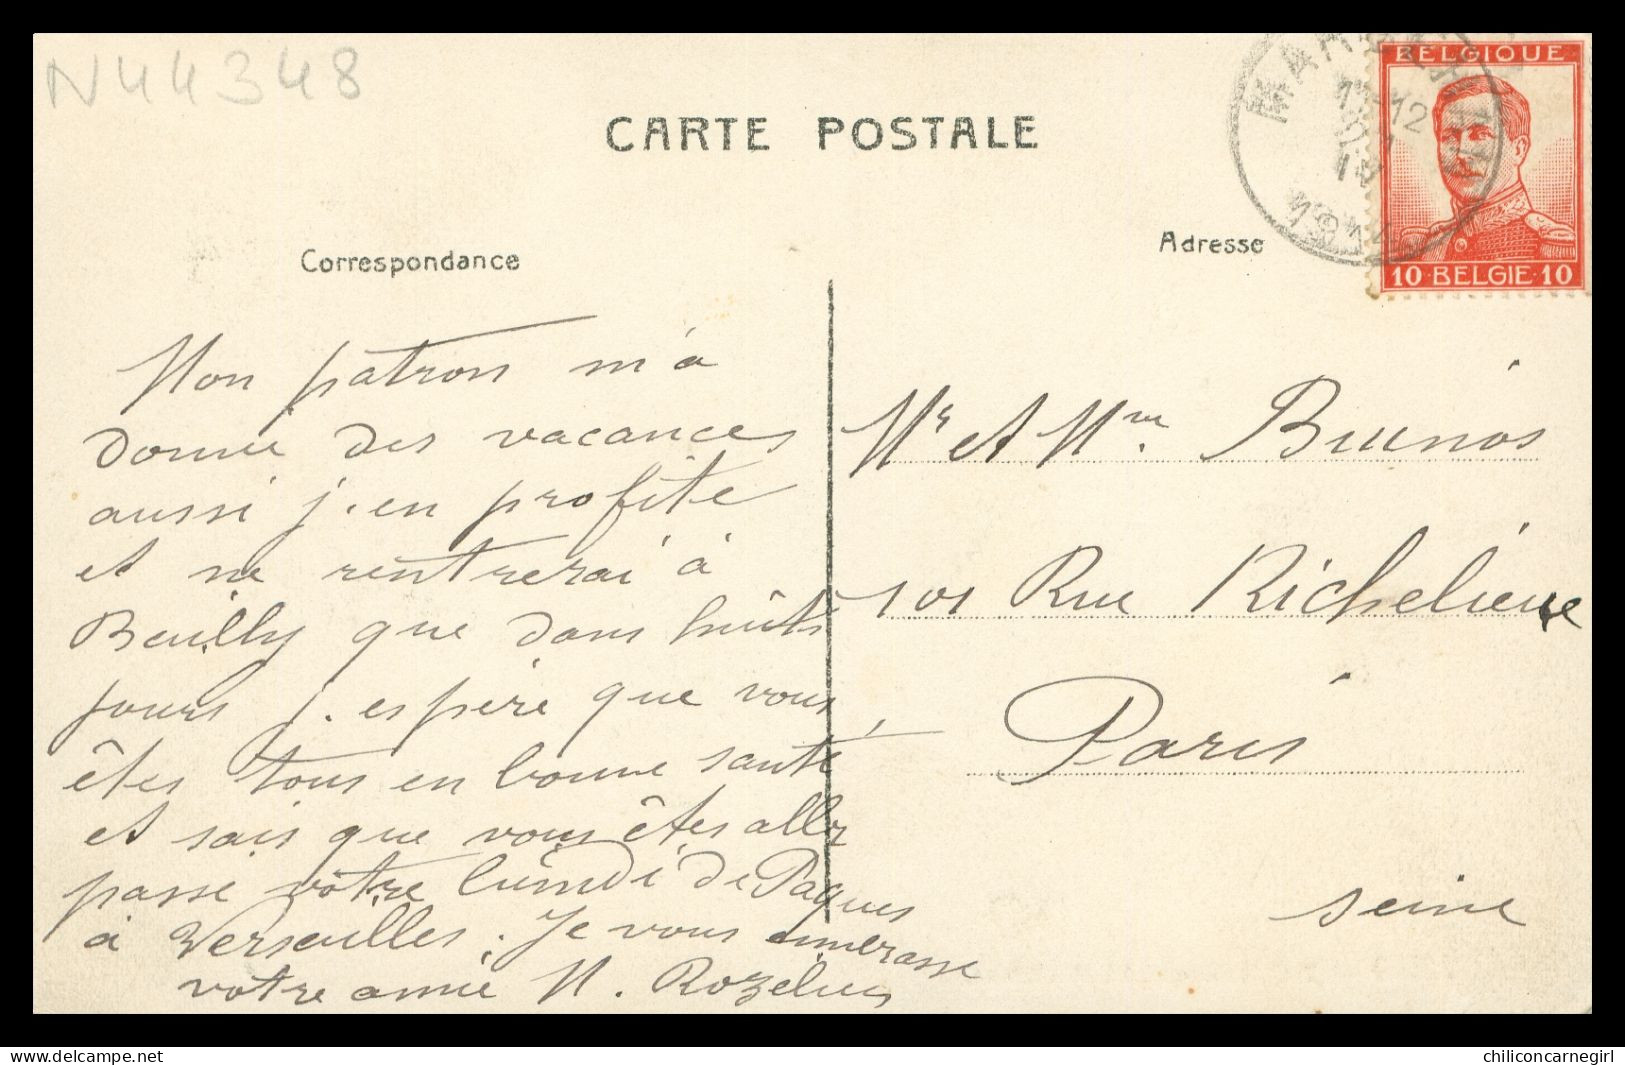 N44348
CARTE POSTALE
BELGIQUE
10 BELGIE 10
Correspondance
Adresse
Mon patron m'a
donné des vacances
aussi j. en profite
et ne rentrerai à
que dans huits
jours j. espère que vous
êtes tous en bonne santé
et sais que vous êtes allez
passe votre lundi de Paques
à Versailles. Je vous emmbrasse
votre amie N.
Mr et Mme Brunos
101 Rue Richelieue
Paris
seine
chiliconcarnegirl
www.delcampe.net